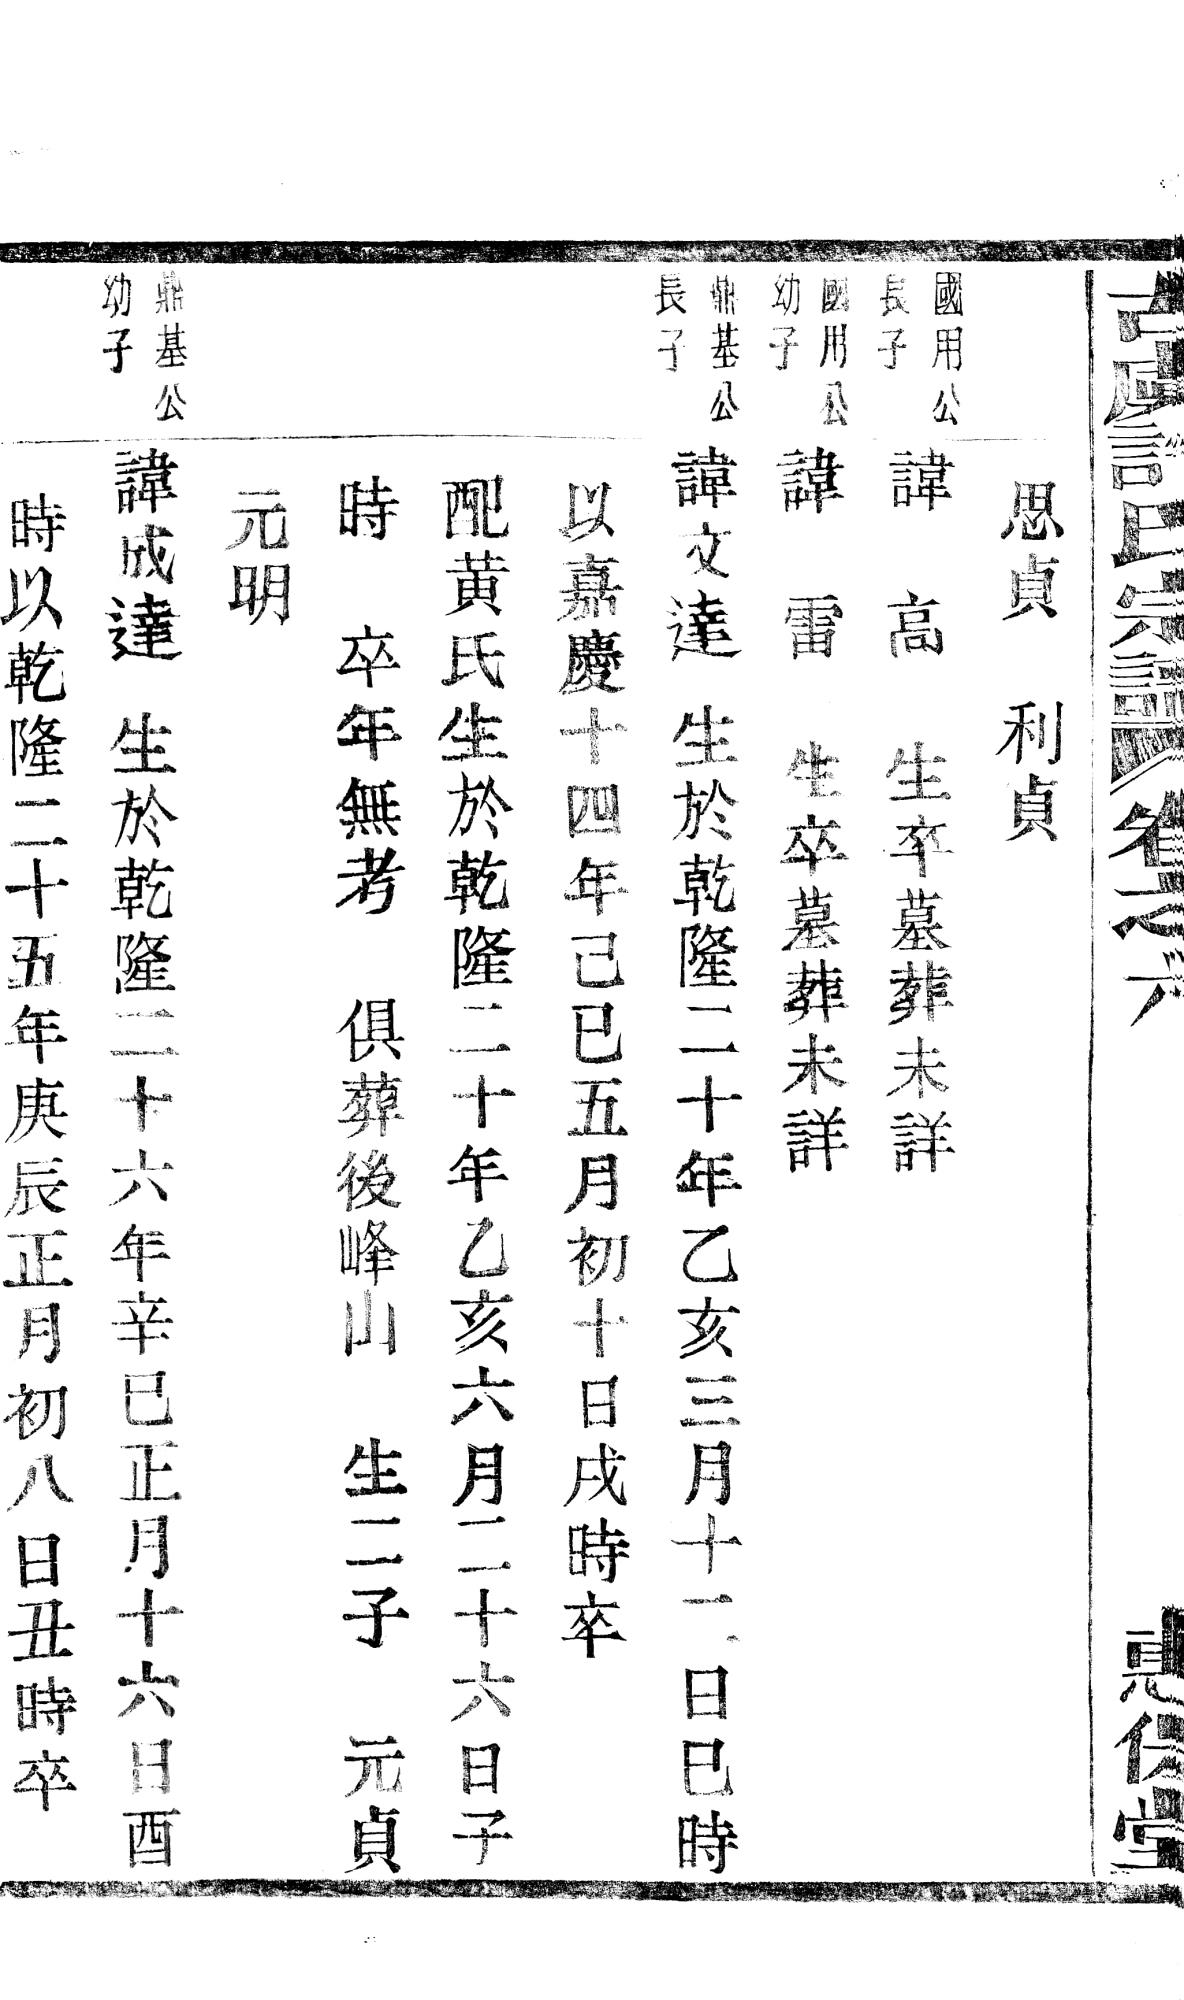 古虞 氏宗譜 卷之六 堂
思貞 利貞
國用公
長子
諱 高 生卒墓葬未詳
國用公
幼子
諱 雷 生卒墓葬未詳
鼎基公
長子
諱文達 生於乾隆二十年乙亥三月十二日巳時
以嘉慶十四年己巳五月初十日戌時卒
配黄氏生於乾隆二十年乙亥六月二十六日子
時 卒年無考 俱葬後峰山 生二子 元貞
元明
鼎基公
幼子
諱成達 生於乾隆二十六年辛巳正月十六日酉
時以乾隆二十五年庚辰正月初八日丑時卒